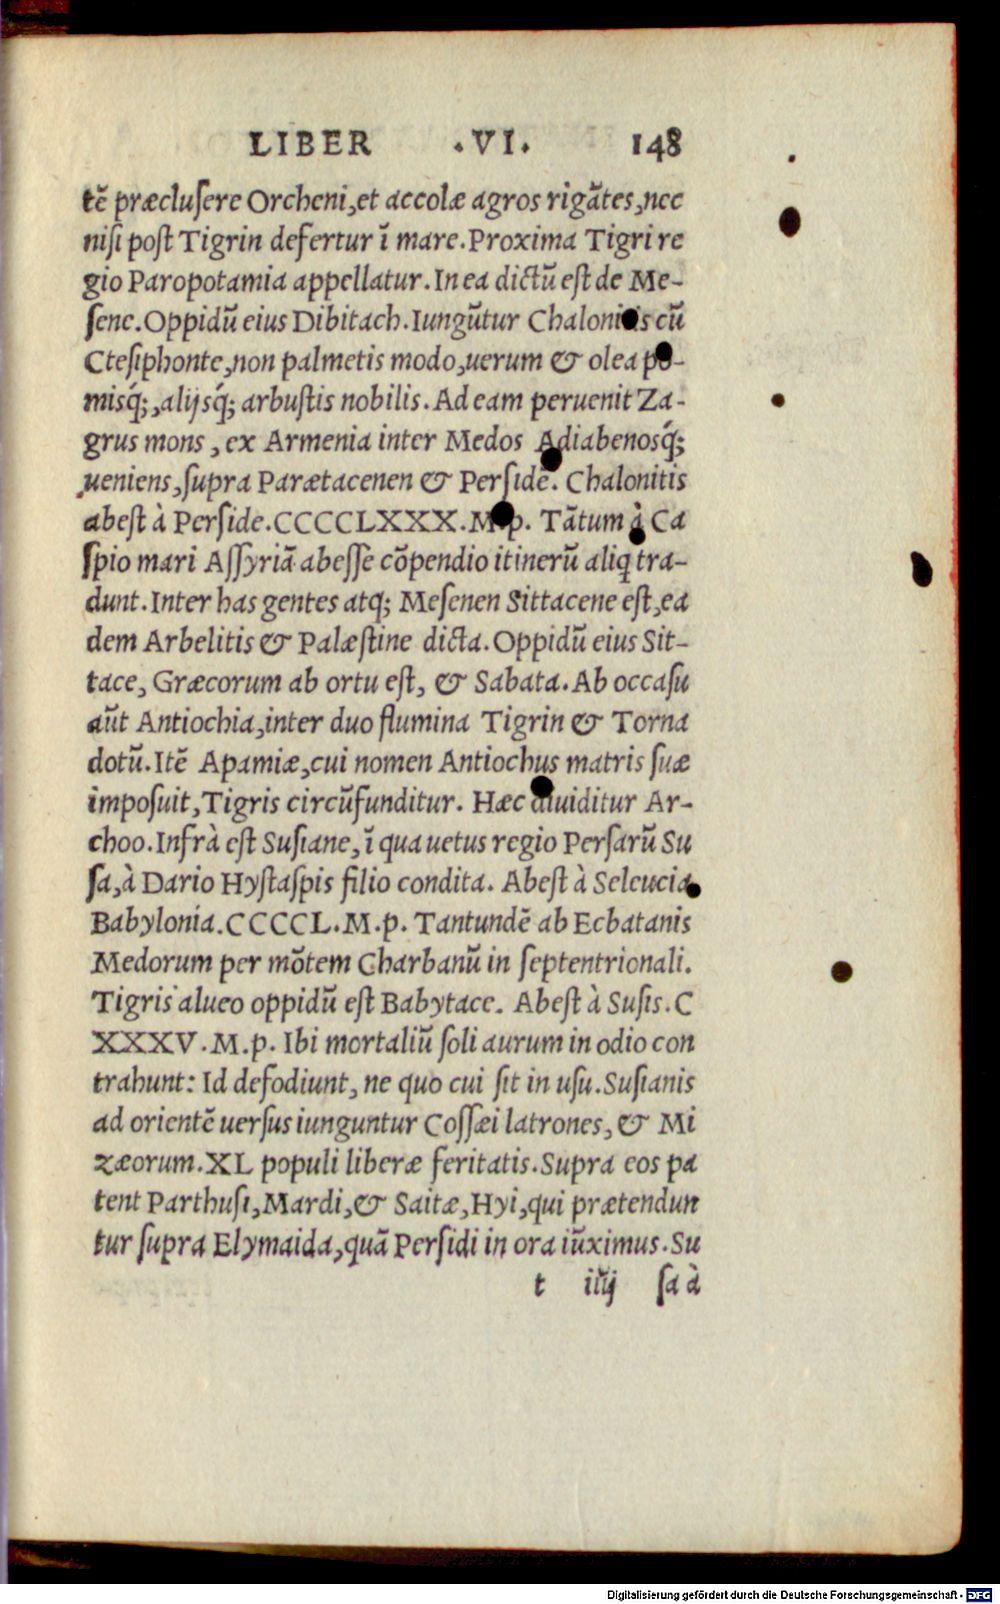 LIBER .VI. 148
tē præcluſere Orcheni,et accolæ agros rigātes,nec
niſi poſt Tigrin defertur ī mare.Proxima Tigri re
gio Paropotamia appellatur.In ea dictū eſt de Me-
ſene.Oppidū eius Dibitach.Iungūtur Chalonitis cū
Cteſiphonte,non palmetis modo,uerum & olea po-
misq́;,alijsq́; arbuſtis nobilis.Ad eam peruenit Za-
grus mons, ex Armenia inter Medos Adiabenosq́;
ueniens,ſupra Parætacenen & Perſidē. Chalonitis
abeſt à Perſide.CCCCLXXX.M.p. Tātum à Ca
ſpio mari Aſſyriā abeſſe cōpendio itinerū aliq tra-
dunt.Inter has gentes atq; Meſenen Sittacene eſt,ea
dem Arbelitis & Palæſtine dicta.Oppidū eius Sit-
tace, Græcorum ab ortu eſt, & Sabata.Ab occaſu
aūt Antiochia,inter duo flumina Tigrin & Torna
dotū.Itē Apamiæ,cui nomen Antiochus matris ſuæ
impoſuit,Tigris circūfunditur. Hæc diuiditur Ar-
choo.Infrà eſt Suſiane, ī qua uetus regio Perſarū Su
ſa,à Dario Hyſtaſpis filio condita. Abeſt à Seleucia
Babylonia.CCCCL.M.p. Tantundē ab Ecbatanis
Medorum per mōtem Charbanū in ſeptentrionali.
Tigris alueo oppidū eſt Babytace. Abeſt à Suſis.C
XXXV.M.p. Ibi mortaliū ſoli aurum in odio con
trahunt: Id defodiunt, ne quo cui ſit in uſu.Suſianis
ad orientē uerſus iunguntur Coſſæi latrones, & Mi
zæorum.XL populi liberæ feritatis.Supra eos pa
tent Parthuſi,Mardi,& Saitæ,Hyi,qui prætendun
tur ſupra Elymaida,quā Perſidi in ora iūximus.Su
t iiij ſa à
Digitalisierung gefördert durch die Deutsche Forschungsgemeinschaft - DFG